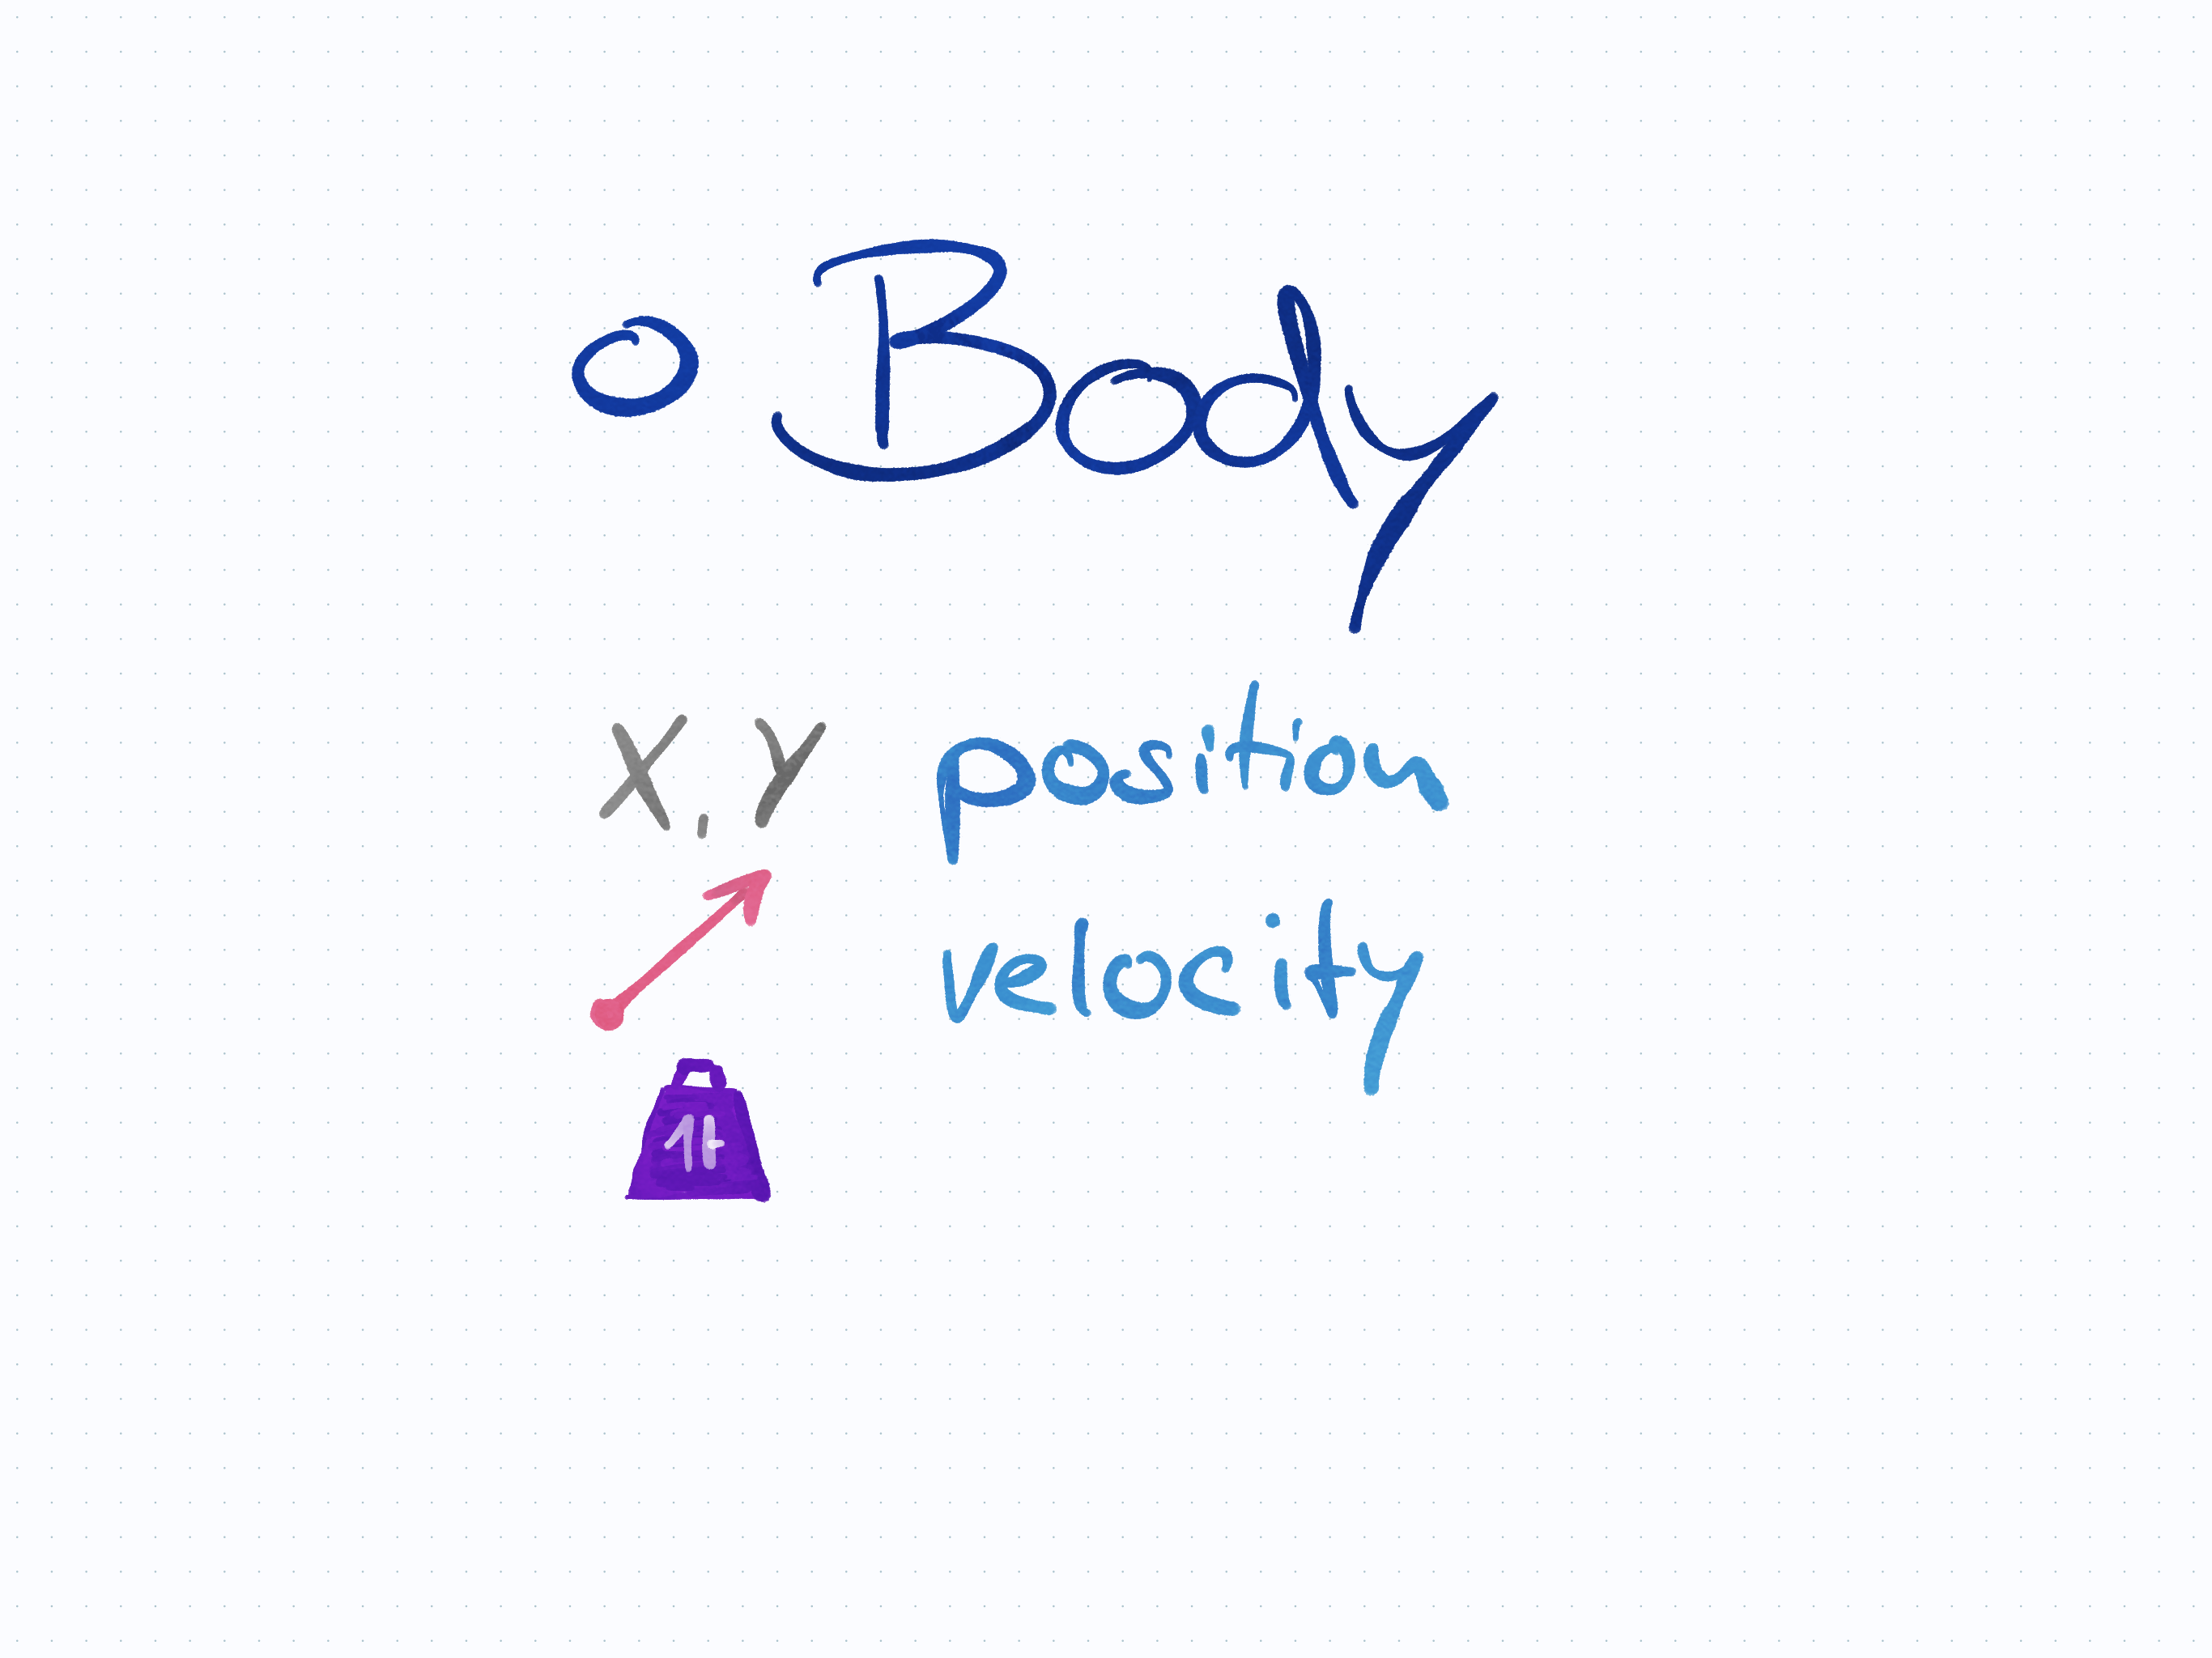 o Body
X, Y position
velocity
1t